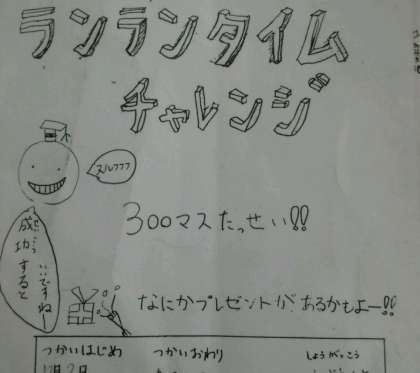 ランランタイム
チャレンジ
ヌルフフフ
300マスたっせい!!
成功すると
いいですねー
なにかプレゼントが、あるかもよー!!
つかいはじめ つかいおわり しょうがっこう